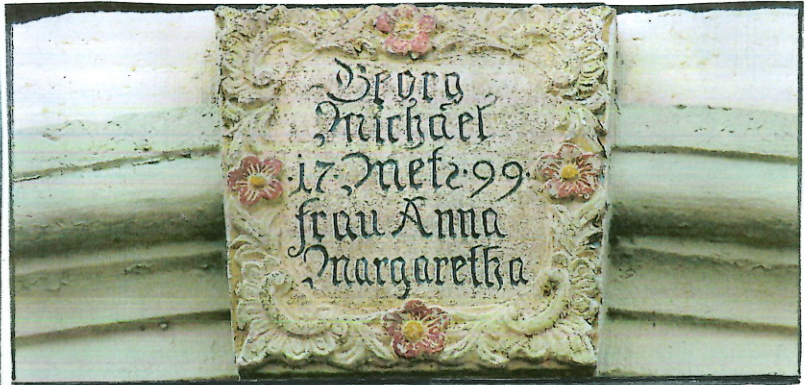 Georg
Michael
·17·Metz·99·
frau Anna
Margaretha